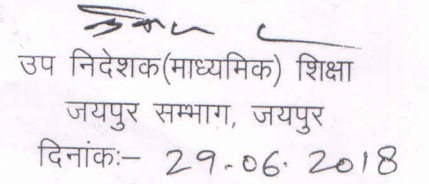 उप निदेशक(माध्यमिक) शिक्षा
जयपुर सम्भाग, जयपुर
दिनांकः– 29.06.2018